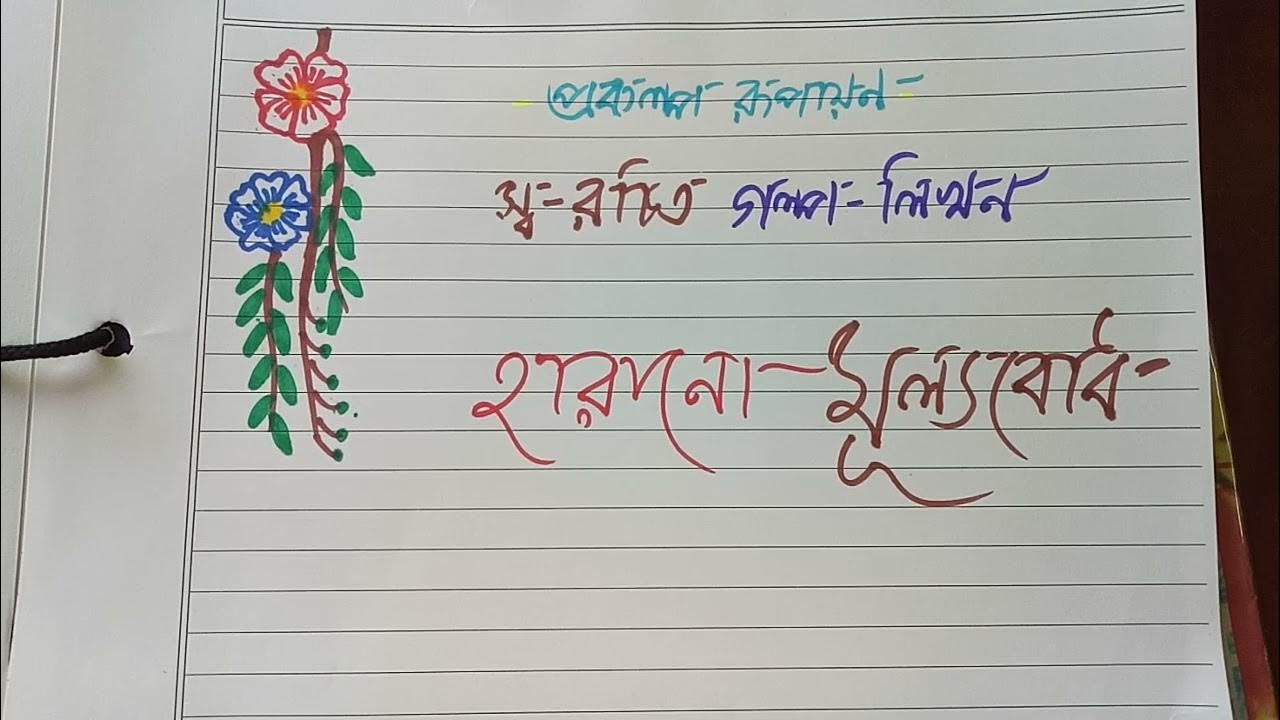 প্রকল্প রূপায়ন
স্ব-রচিত গল্প-লিখন
হারানো-মূল্যবোধ